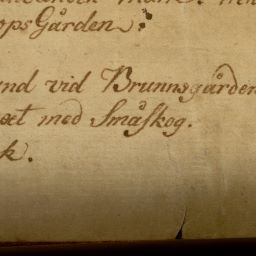 opsGården.
nd vid Brunnsgården
xt med Småskog.
k.